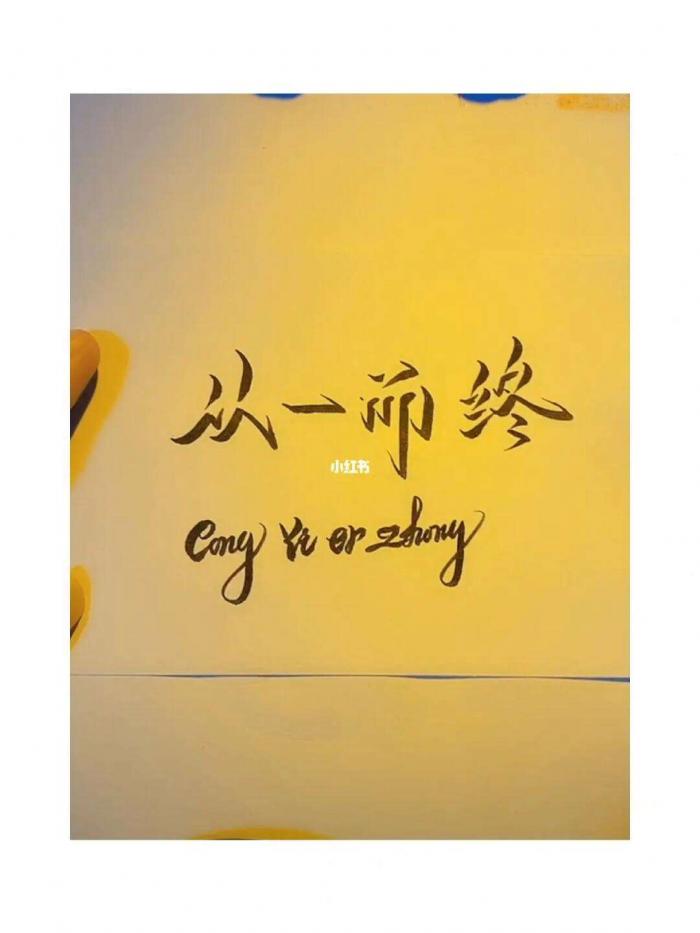 从一而终
小红书
Cong Yi er zhong